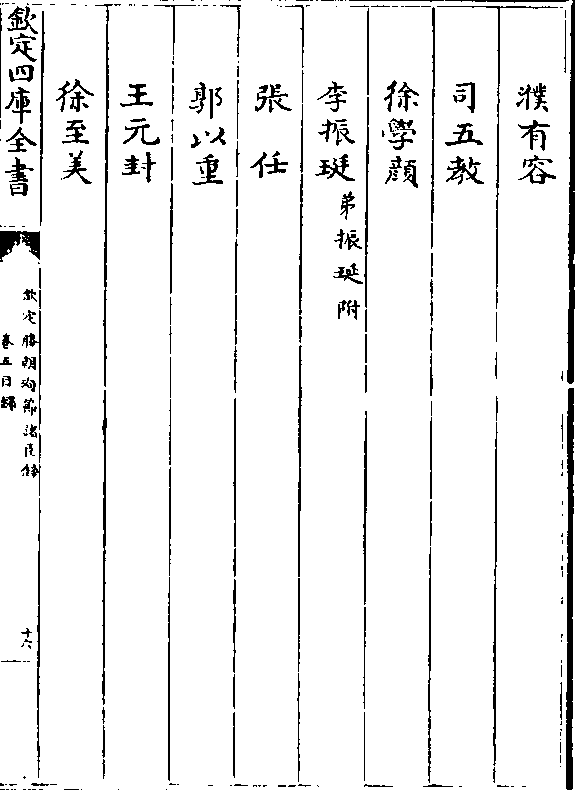 濮有容
司五教
徐學顔
李振珽弟振珽附
張任
郭以重
王元封
徐至美
欽定四庫全書
欽定勝朝殉節諸臣錄
卷五目錄
十六